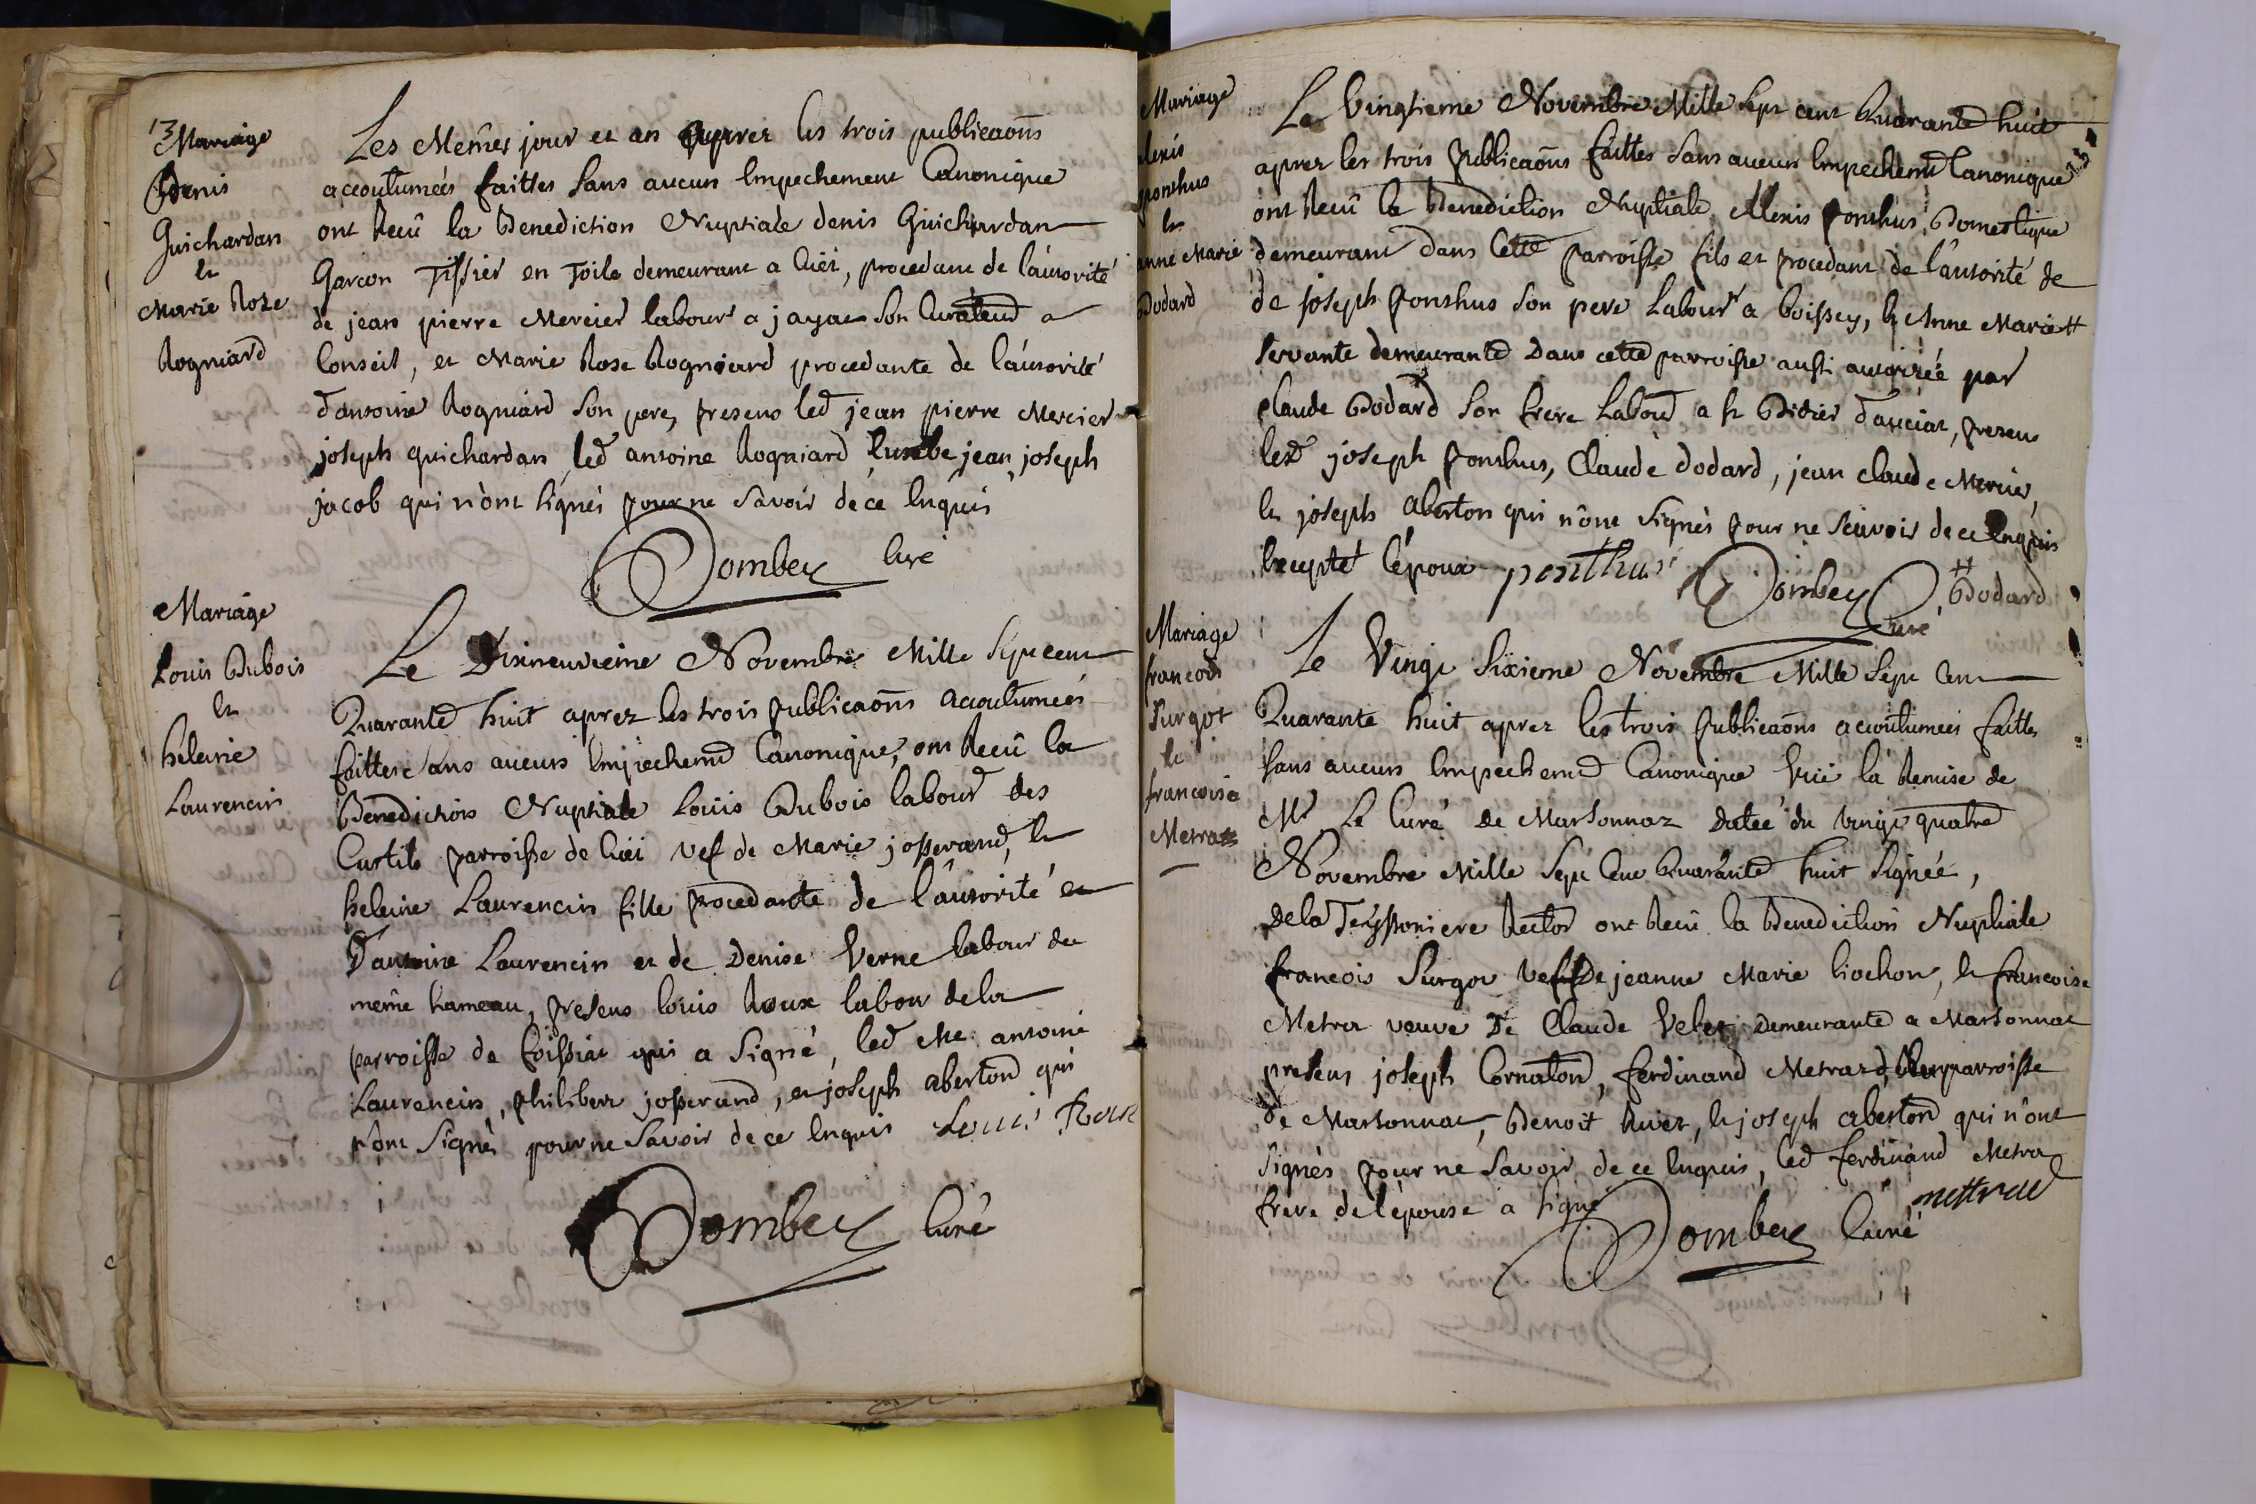 13
Mariage
Denis
Guichardan
et
Marie Roze
Rogniard
Les Mêmes jour et an aprez les trois publicaons
accoutumées faittes sans aucun Empechement Canonique
ont Receû la Benediction Nuptiale denis Guichardan
Garcon Tissier en Toile demeurant a Cüet, procedant de l'autorité
de jean pierre Mercier labour a jayat son Curateur a
Conseil, et Marie Rose Rogniard procedante de l'autorité
d'antoine Rogniard son pere, presens led jean pierre Mercier
joseph guichardan led antoine Rogniard jean joseph
jacob qui n'ont signés pour ne savoir de ce Enquis
Dombey Curé
Mariage
Louis Dubois
et
heleine
Laurencin
Le Dixneuvieme Novembre Mille Sept cent
Quarante huit aprez les trois publicaons accoutumées
faittes sans aucun Empechemt Canonique, ont Receû la
Benediction Nuptiale Loüis Dubois labour des
Curtils parroisse de Cüet vef de Marie josserand, et
heleine Laurencin fille procedante de l'autorité et
D'antoine Laurencin et de Denise Verne labour du
même hameau, presens louis Roux labour de la
parroisse de foissiat qui a signé, led Me antoine
Laurencin, philibert josserand, et joseph aberton qui
n'ont signés pour ne savoir de ce Enquis Louis Roux
Dombey Curé
Mariage
alexis
ponthus
et
anne Marie
Dodard
Le Vingtieme Novembre Mille Sept cent Quarante huit
aprez les trois publicaons faittes sans aucun Empechemt Canonique
ont Receû la Benediction Nuptiale Alexis ponthus, Domestique
demeurant dans Cette parroisse fils et procedant de l'autorité de
de joseph ponthus son pere Labour a boissey, et Anne Marie ++
servante demeurante Dans cette parroisse aussi autorizée par
claude Dodard son frere Labour a st Didier d'auciat, presens
lesd joseph ponthus, Claude dodard, jean claude Mercier,
et joseph aberton qui n'ont signés pour ne sçavoir de ce Enquis
Excepté l'époux ponthus Dombey Curé
++ Dodard
Mariage
francois
Surgot
et
francoise
Metras
Le Vingt Sixieme Novembre Mille Sept Cent
Quarante huit aprez les trois publicaons accoutumées faittes
sans aucun Empechemt Canonique Vüe la Remise de
Mr Le Curé De Marsonnaz Datée du Vingt quatre
Novembre Mille Sept Cent Quarante huit Signée,
De la Teyssoniere Rector ont Receû la Benediction Nuptiale
francois Surgot vef De jeanne Marie liochon, et francoise
Metras veuve De Claude Velet Demeurante a Marsonnat
presens joseph Cornaton, ferdinand Metrard, parroisse
de Marsonnat, Benoit Rivet, et joseph aberton qui n'ont
signés pour ne savoir de ce Enquis, led ferdinand Metra
frere de l'épouse a signé mettrad
Dombey Curé